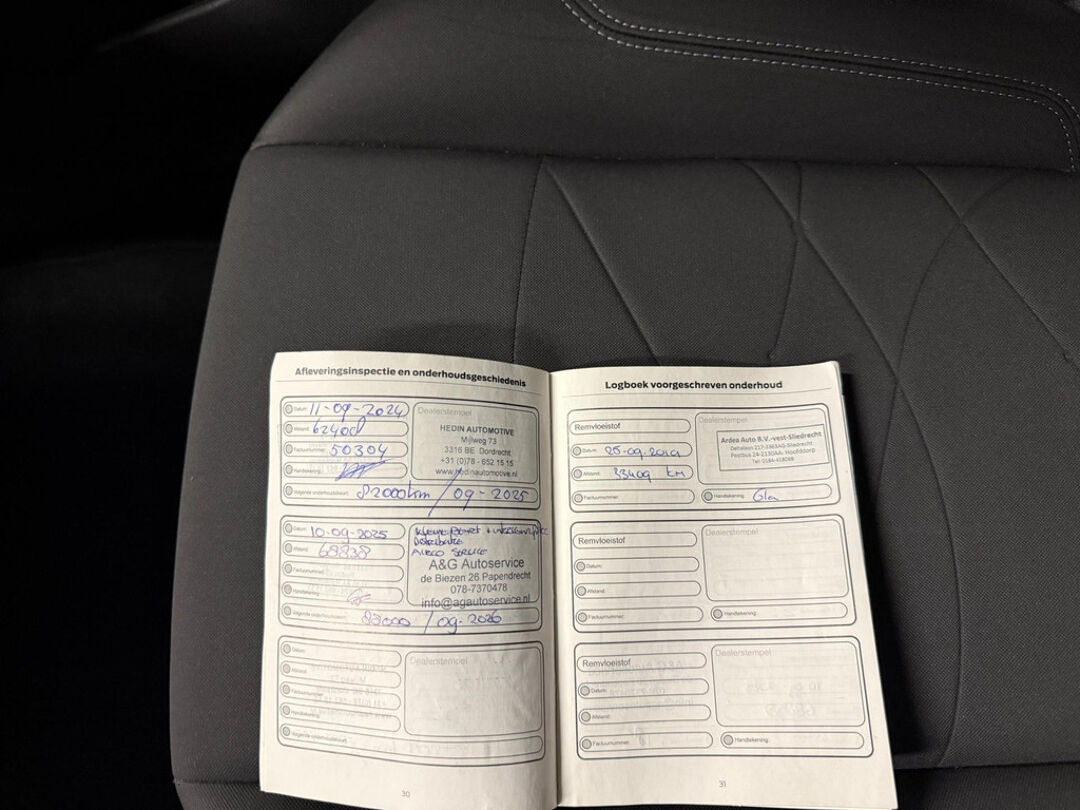 Afleveringsinspectie en onderhoudsgeschiedenis
Datum: 11-09-2024
Afstand: 62400
Factuurnummer: 50304
Handtekening:
Volgende onderhoudsbeurt: 82000km / 09-2025
Dealerstempel
HEDIN AUTOMOTIVE
Mijlweg 73
3316 BE Dordrecht
+31 (0)78 - 652 15 15
www.hedinautomotive.nl
Datum: 10-09-2025
Afstand: 68838
Factuurnummer:
Handtekening:
Volgende onderhoudsbeurt: 88000 / 09-2026
Kleine Beurt +
Airco Service
A&G Autoservice
de Biezen 26 Papendrecht
078-7370478
info@agautoservice.nl
Datum:
Afstand:
Factuurnummer:
Handtekening:
Volgende onderhoudsbeurt:
Dealerstempel
30
Logboek voorgeschreven onderhoud
Remvloeistof
Datum: 25-09-2019
Afstand: 33409 KM
Factuurnummer:
Dealerstempel
Ardea Auto B.V.-vest-Sliedrecht
Handtekening:
Remvloeistof
Datum:
Afstand:
Factuurnummer:
Dealerstempel
Handtekening:
Remvloeistof
Datum:
Afstand:
Factuurnummer:
Dealerstempel
Handtekening:
31